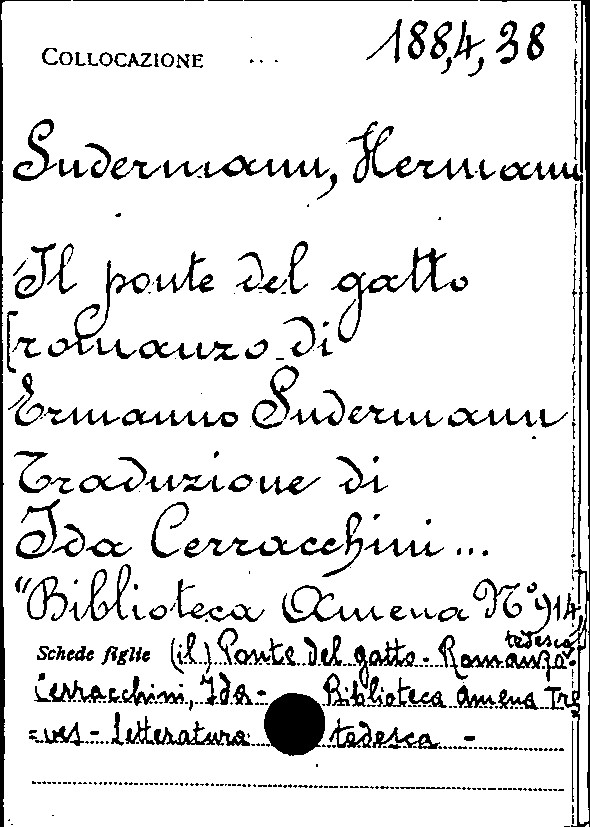 COLLOCAZIONE ... 1884, 38
Sudermann, Hermann
Il ponte del gatto
[romanzo di
Ermanno Sudermann
Traduzione di
Ida Cerracchini ...
"Biblioteca Amena N° 914"
Schede figlie (il) Ponte del gatto - Romanzo tedesco -
Cerracchini, Ida - Biblioteca Amena Tre
=ves - Letteratura tedesca -